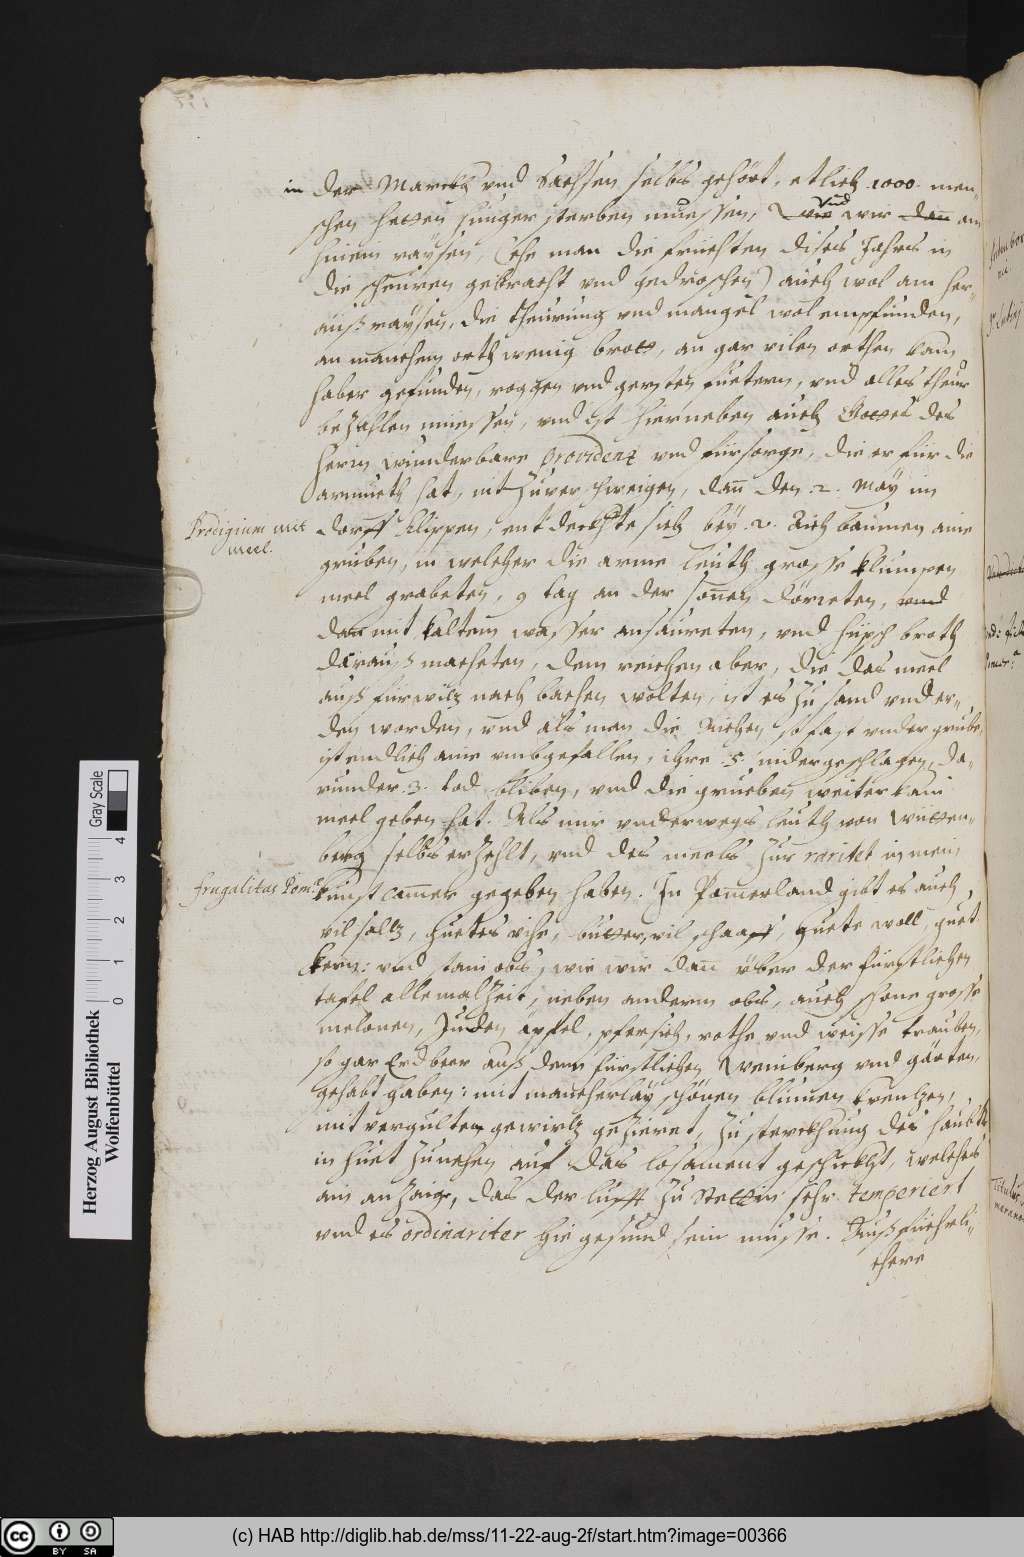 in der Marckh vnd Sachsen selbs gehört, etlich 1000. men-
schen hetten hunger sterben muessen, vnd wir am
hinein raÿsen, (ehe man die früchten dises Jahrs in
die scheuren gebracht vnd gedroschen) auch wol am her-
auß raÿsen, die theurung vnd mangel wol empfunden,
an manchem orth wenig brott, an gar vilen orthen kain
haber gefunden, roggen vnd gersten fuetern, vnd alles theur
bezahlen müessen, vnd ist hierneben auch Gottes des
Herrn wunderbare providenz vnd fürsorge, die er für die
armueth hat, nit zuverschweigen, dan̄ den .2. Maÿ im
Prodigium mit
meel.
dorff Klippen, entdeckhte sich beÿ .2. Aich baumen aine
gruben, in welcher die arme leuth grosse klumpen
meel grabeten, 9 tag an der son̄en dörreten, vnd
dan mit kaltem wasser ansaureten, vnd hüpsch broth
darauß macheten, dem reichen aber, die das meel
auß fürwitz nach bachen wolten, ist es zu sand vnd er-
den worden, vnd als man die Aichen so fast vndergrube,
ist endlich aine vmbgefallen, ihre .5. nidergeschlagen, da-
runder .3. tod bliben, vnd die grueben weiter kain
meel geben hat. Als mir vnderwegs leuth von Witten-
berg selbs erzehlt, vnd des meels zur raritet in mein
frugalitas Pom:
kunst camer gegeben haben. In Pomerland gibt es auch
vil saltz, guetes vihe, butter, vil schaaf, guete woll, guet
korn: vnd kain obs, wie wir dan̄ über der fürstlichen
tafel allemal Zeit, neben anderm obs, auch schöne grosse
melonen, Juden äpfel, pfersich, rothe vnd weisse trauben,
so gar Erdbeer auß dem fürstlichen Weinberg vnd gärten,
gehabt haben: mit mancherlaÿ schönen blumen
mit vergulten gewirtz gezieret, zu sterckhung des haubts
in huet zunehen auf das losament geschickht, welches
ain anzaig, das der lufft zu Stettin sehr temperiert
vnd es ordinariter hie gesund sein müsse. Außfüehrli-
chere
Herzog August Bibliothek
Wolfenbüttel
0 1 2 3 4
Gray Scale
(c) HAB http://diglib.hab.de/mss/11-22-aug-2f/start.htm?image=00366
cc BY SA